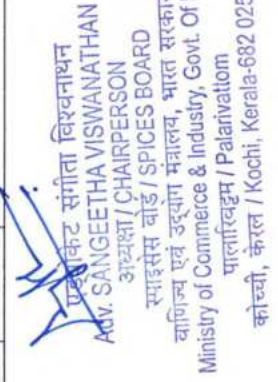 एडवोकेट संगीता विश्वनाथन
Adv. SANGEETHA VISWANATHAN
अध्यक्षा / CHAIRPERSON
स्पाइसेस बोर्ड / SPICES BOARD
वाणिज्य एवं उद्योग मंत्रालय, भारत सरकार
Ministry of Commerce & Industry, Govt. Of
पालारिवट्टम / Palarivattom
कोच्ची, केरल / Kochi, Kerala-682 025